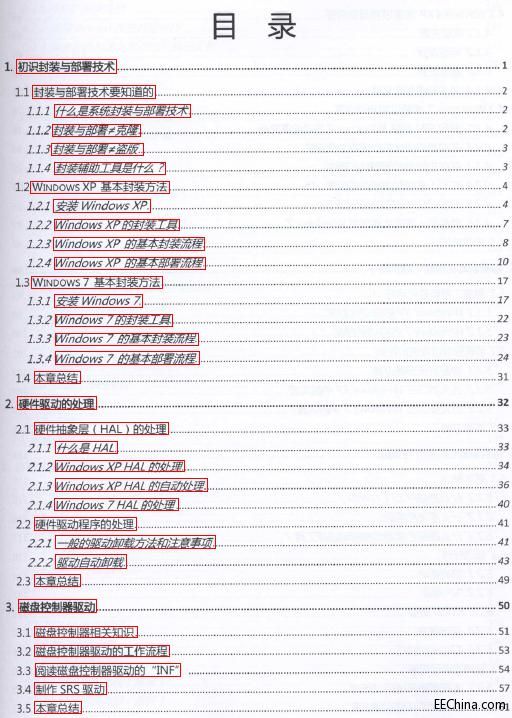 目 录
1. 初识封装与部署技术 1
1.1 封装与部署技术要知道的 2
1.1.1 什么是系统封装与部署技术 2
1.1.2 封装与部署≠克隆 2
1.1.3 封装与部署≠盗版 3
1.1.4 封装辅助工具是什么？ 3
1.2 WINDOWS XP 基本封装方法 4
1.2.1 安装 Windows XP 4
1.2.2 Windows XP 的封装工具 7
1.2.3 Windows XP 的基本封装流程 8
1.2.4 Windows XP 的基本部署流程 10
1.3 WINDOWS 7 基本封装方法 17
1.3.1 安装 Windows 7 17
1.3.2 Windows 7 的封装工具 22
1.3.3 Windows 7 的基本封装流程 23
1.3.4 Windows 7 的基本部署流程 24
1.4 本章总结 31
2. 硬件驱动的处理 32
2.1 硬件抽象层（HAL）的处理 33
2.1.1 什么是 HAL 33
2.1.2 Windows XP HAL 的处理 34
2.1.3 Windows XP HAL 的自动处理 36
2.1.4 Windows 7 HAL 的处理 40
2.2 硬件驱动程序的处理 41
2.2.1 一般的驱动卸载方法和注意事项 41
2.2.2 驱动自动卸载 43
2.3 本章总结 49
3. 磁盘控制器驱动 50
3.1 磁盘控制器相关知识 51
3.2 磁盘控制器驱动的工作流程 53
3.3 阅读磁盘控制器驱动的“INF” 54
3.4 制作 SRS 驱动 57
3.5 本章总结
EEChina.com